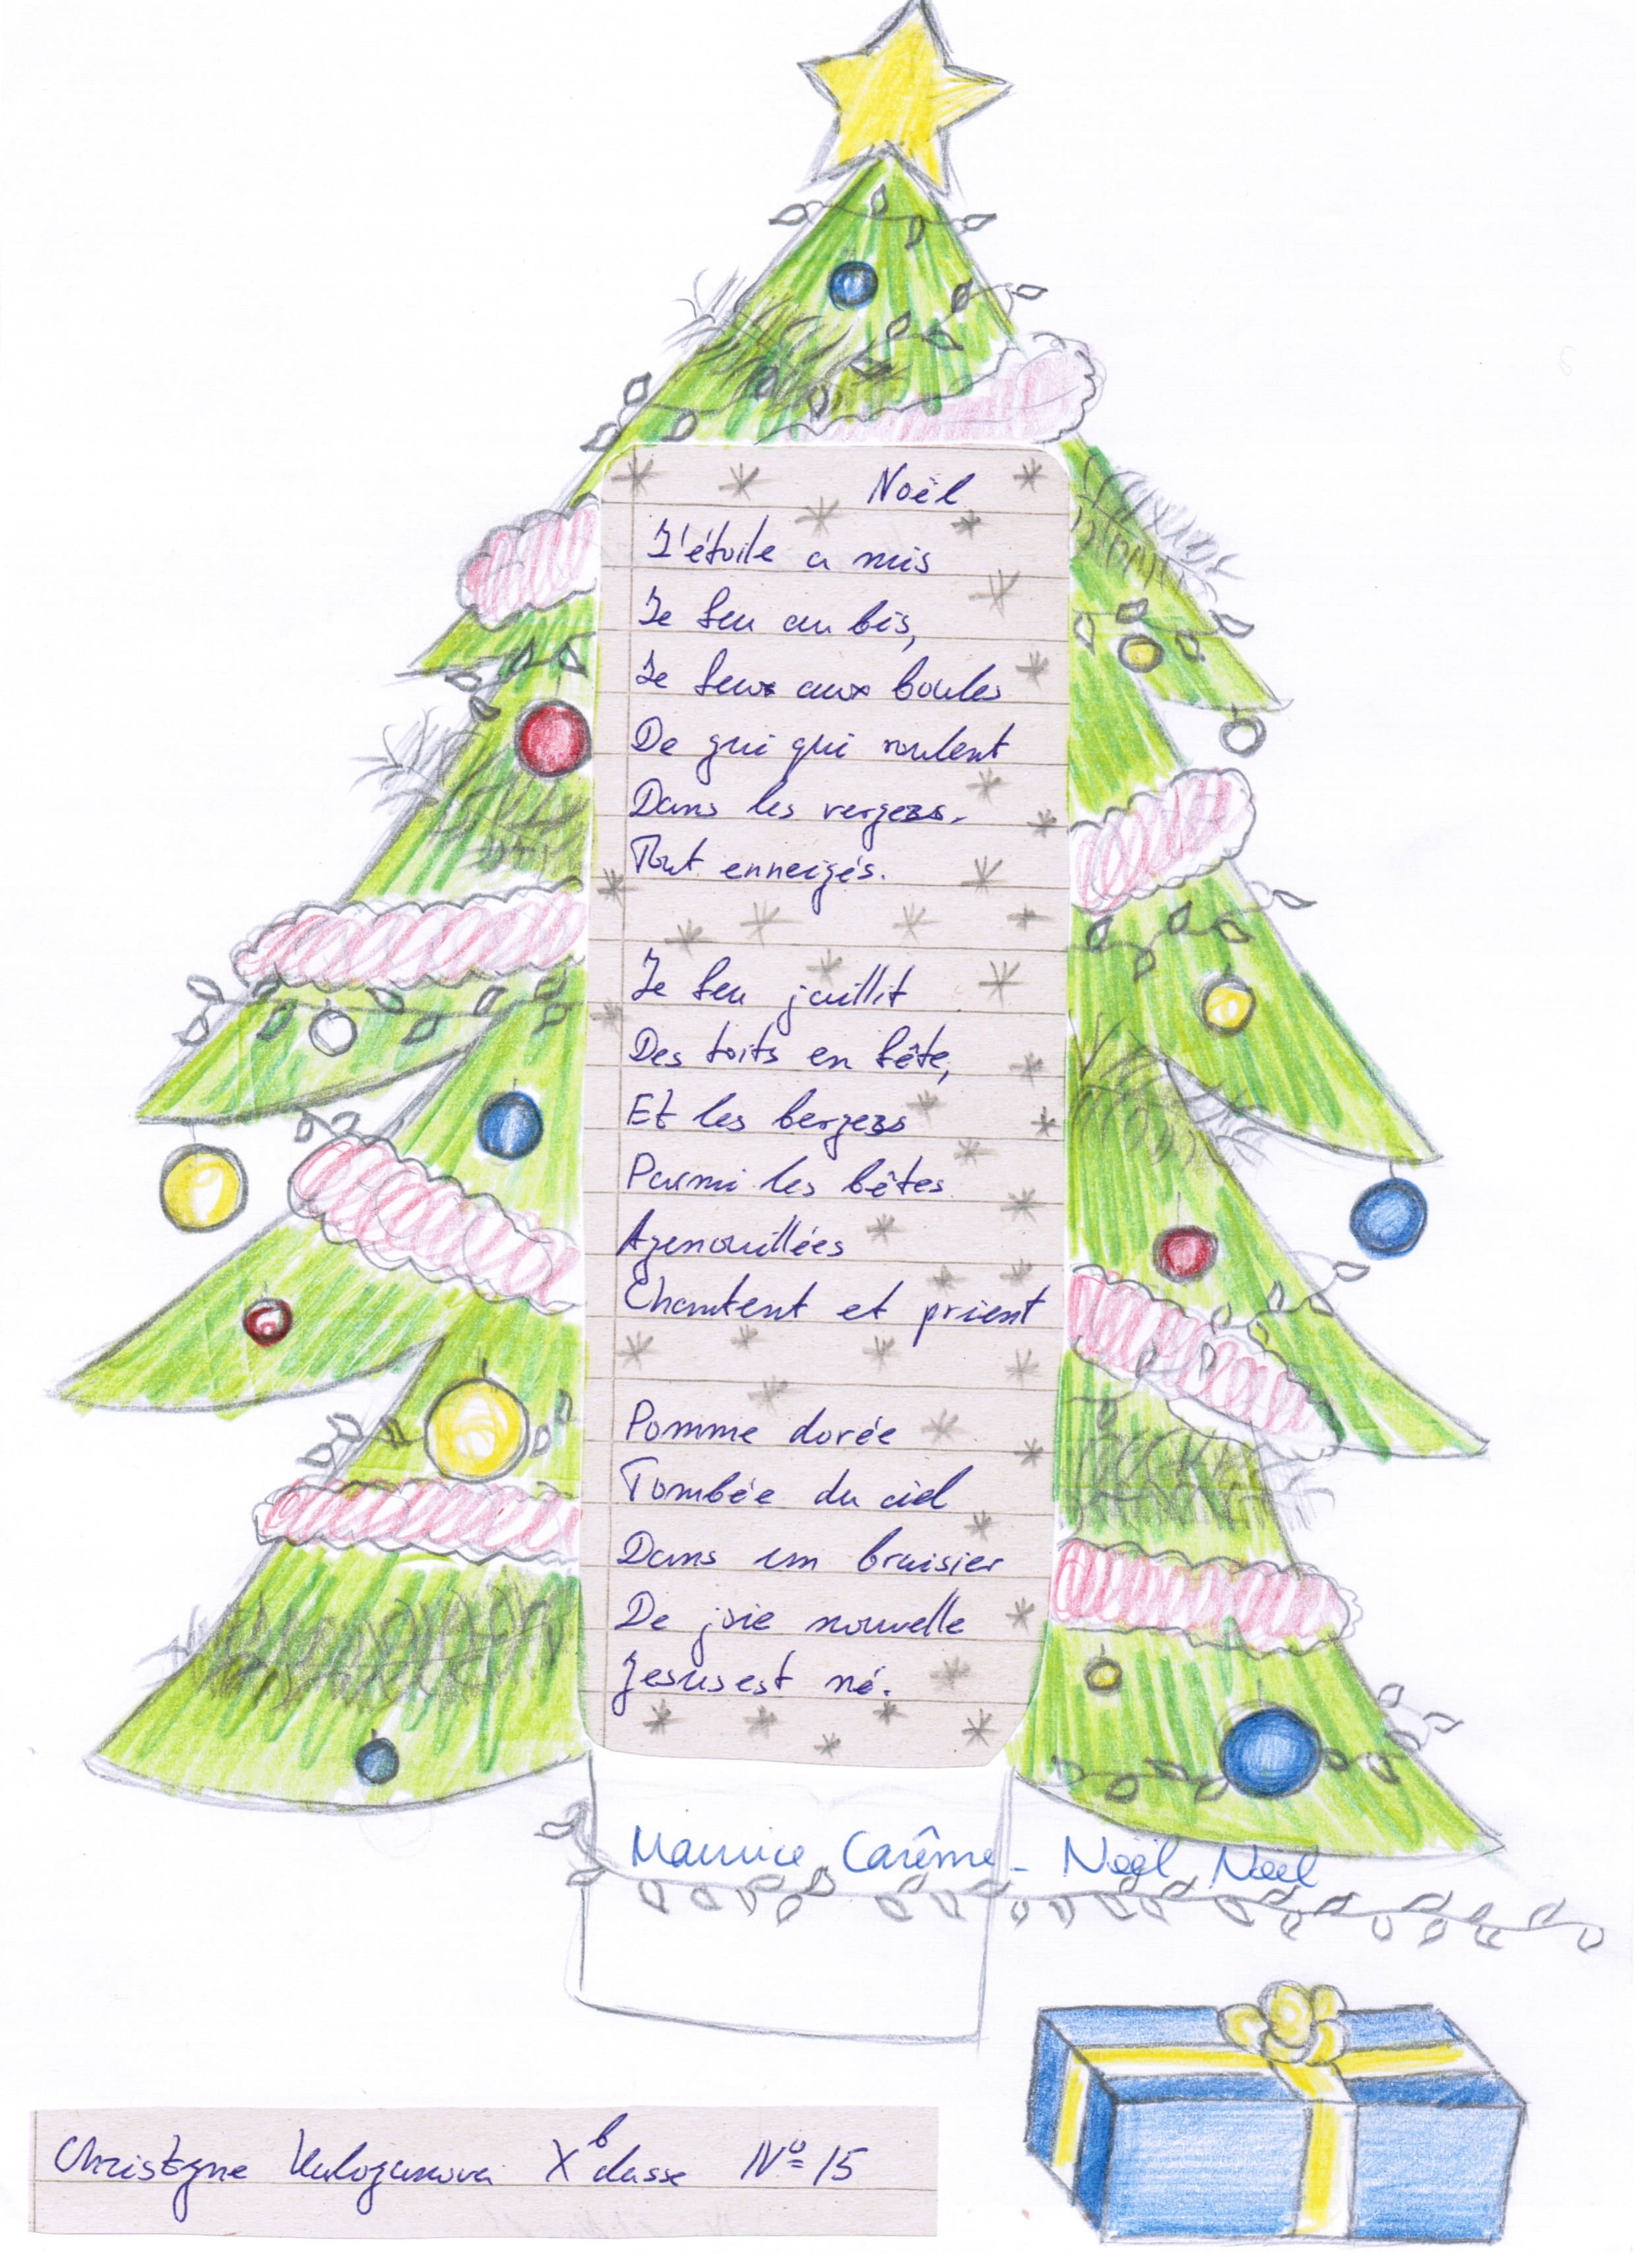 Noël
L'étoile a mis
Le feu au bis,
Le feux aux boules
De gui qui roulent
Dans les vergers.
Tout enneigés.
Le feu jaillit
Des toits en fête,
Et les bergers
Parmi les bêtes
Agenouillées
Chantent et prient
Pomme dorée
Tombée du ciel
Dans un braisier
De joie nouvelle
Jesus est né.
Maurice Carême - Noël, Noël
X b classe №15